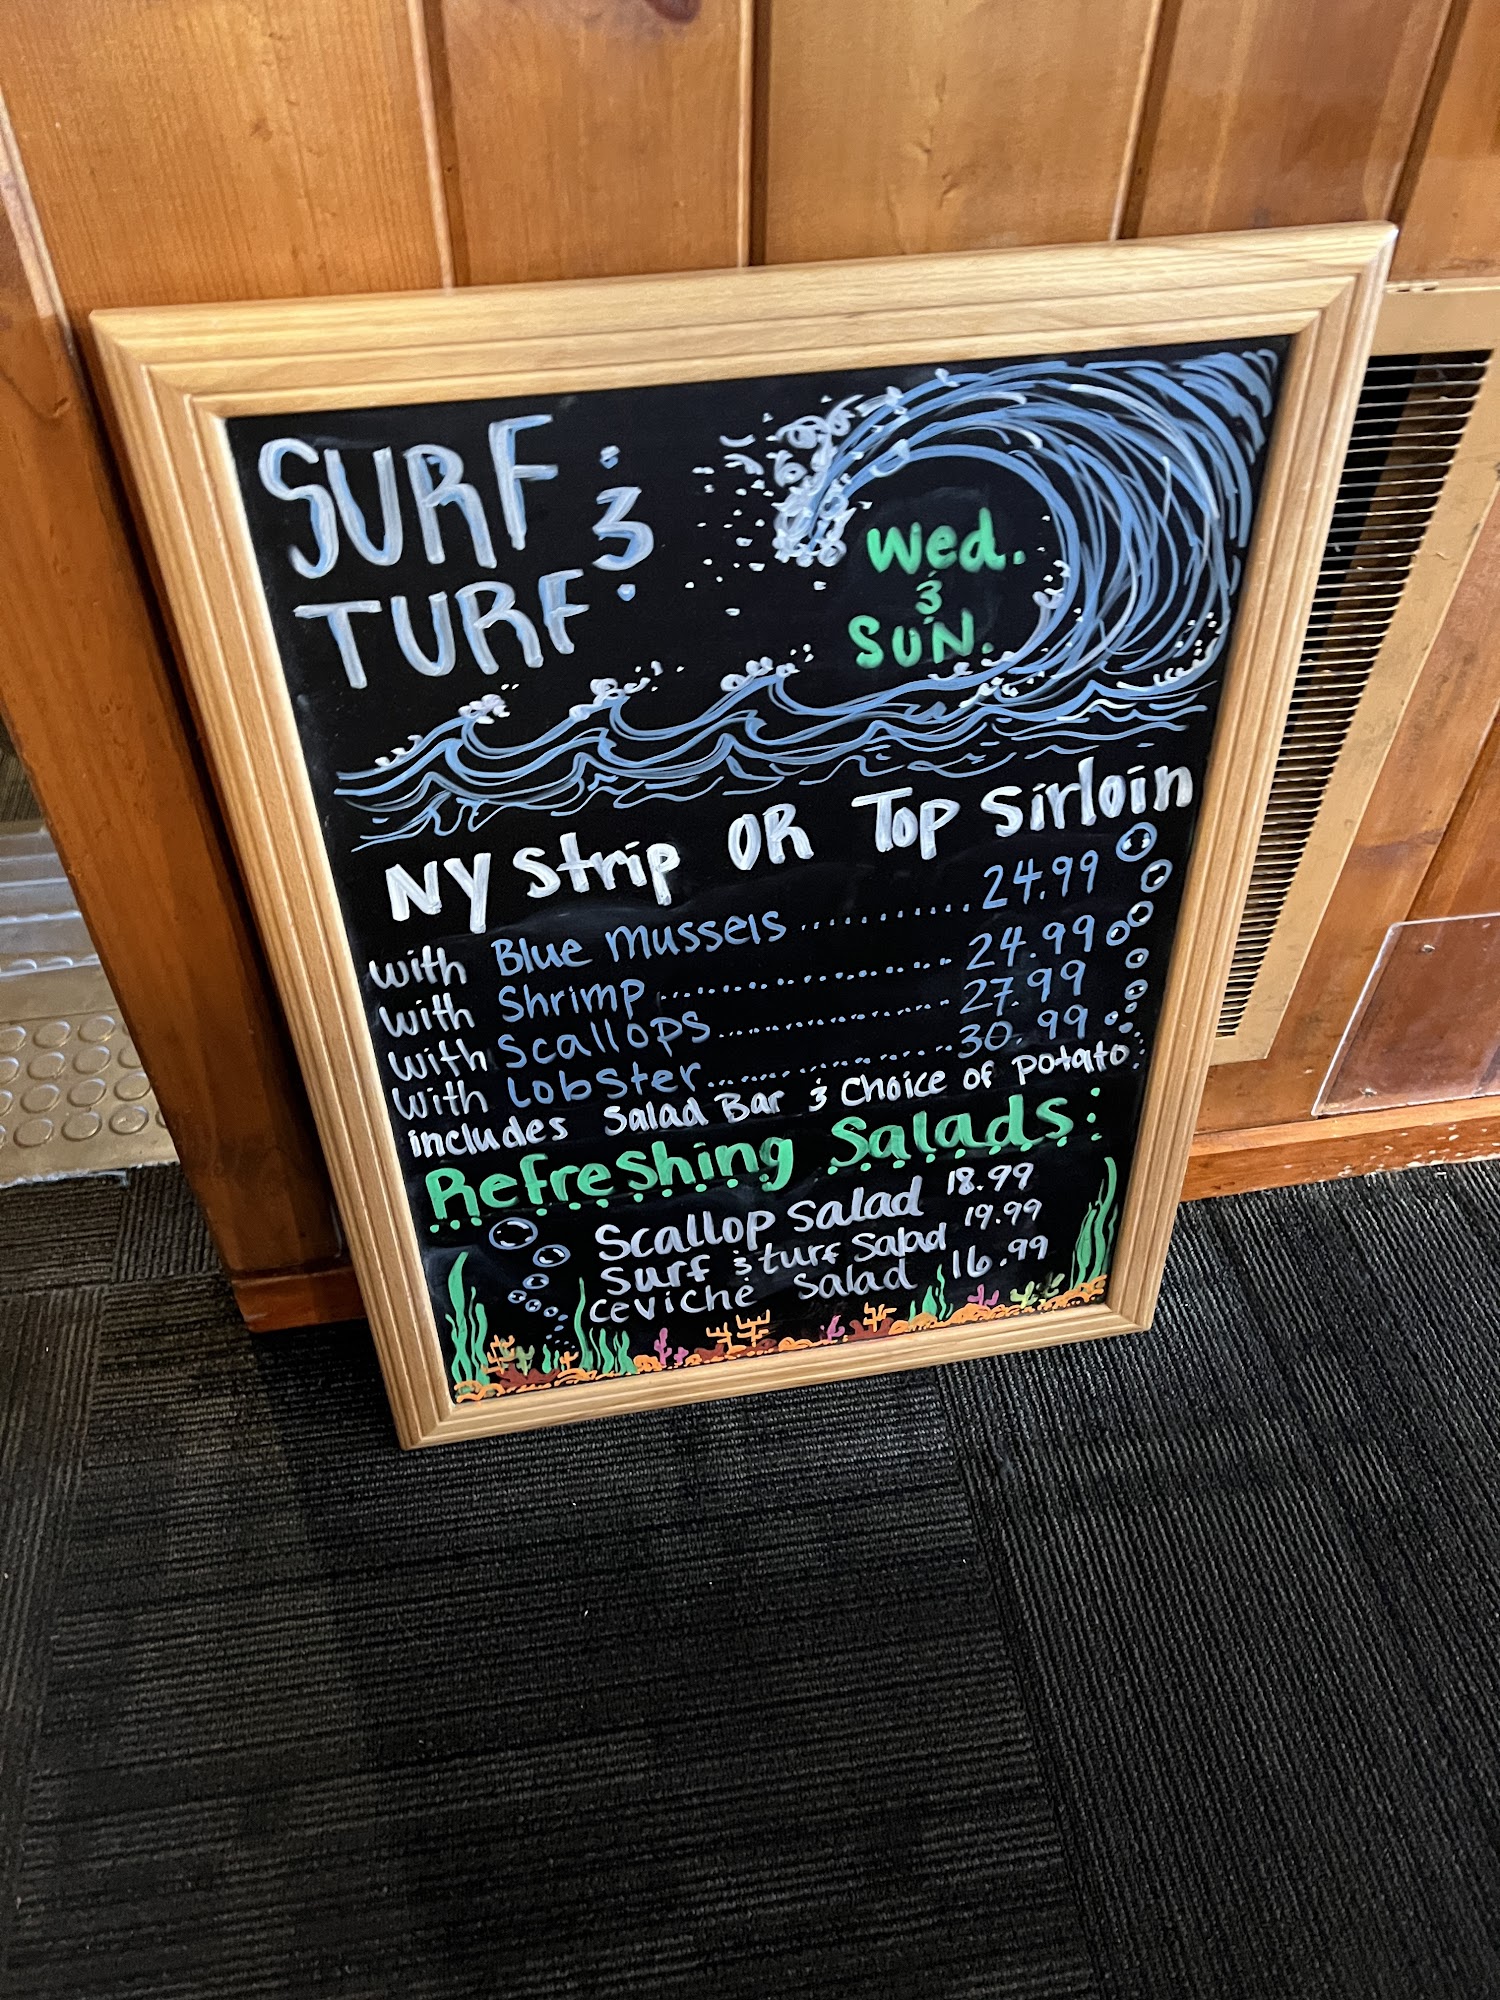 SURF &
TURF
Wed.
&
SUN.
NY Strip OR Top Sirloin
with Blue Mussels ............ 24.99
with Shrimp .................... 24.99
with Scallops .................. 27.99
with Lobster .................. 30.99
includes Salad Bar & Choice of Potato
Refreshing Salads:
Scallop Salad 18.99
Surf & turf Salad 19.99
ceviche Salad 16.99